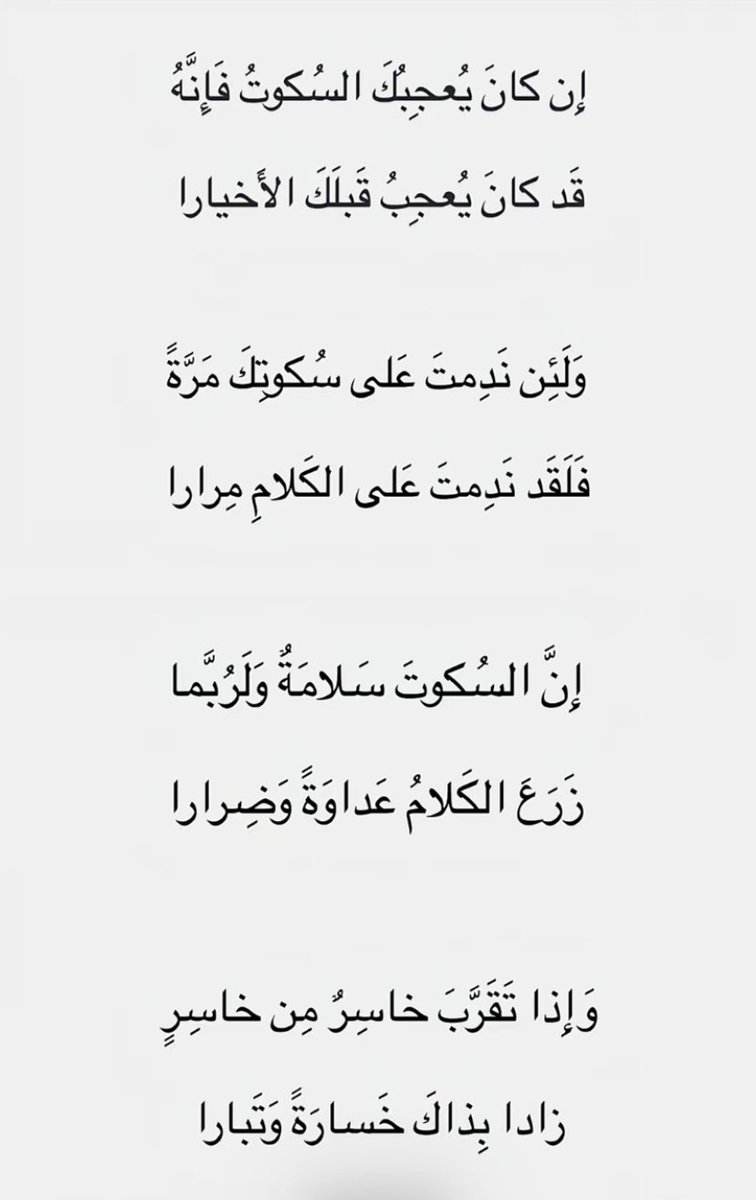 إِن كانَ يُعجِبُكَ السُكوتُ فَإِنَّهُ
قَد كانَ يُعجِبُ قَبلَكَ الأَخيارا
وَلَئِن نَدِمتَ عَلى سُكوتِكَ مَرَّةً
فَلَقَد نَدِمتَ عَلى الكَلامِ مِرارا
إِنَّ السُكوتَ سَلامَةٌ وَلَرُبَّما
زَرَعَ الكَلامُ عَداوَةً وَضِرارا
وَإِذا تَقَرَّبَ خاسِرٌ مِن خاسِرٍ
زادا بِذاكَ خَسارَةً وَتَبارا